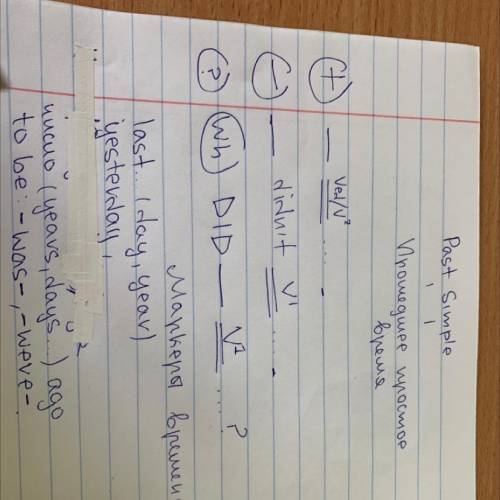 Past Simple
Прошедшее простое
время
(+) — Ved/V² .....
(–) — didn't V¹ .....
(?) (Wh) DID — V¹ ....?
Маркеры времен
last... (day, year)
yesterday,
число (years, days...) ago
to be: -was-, -were-